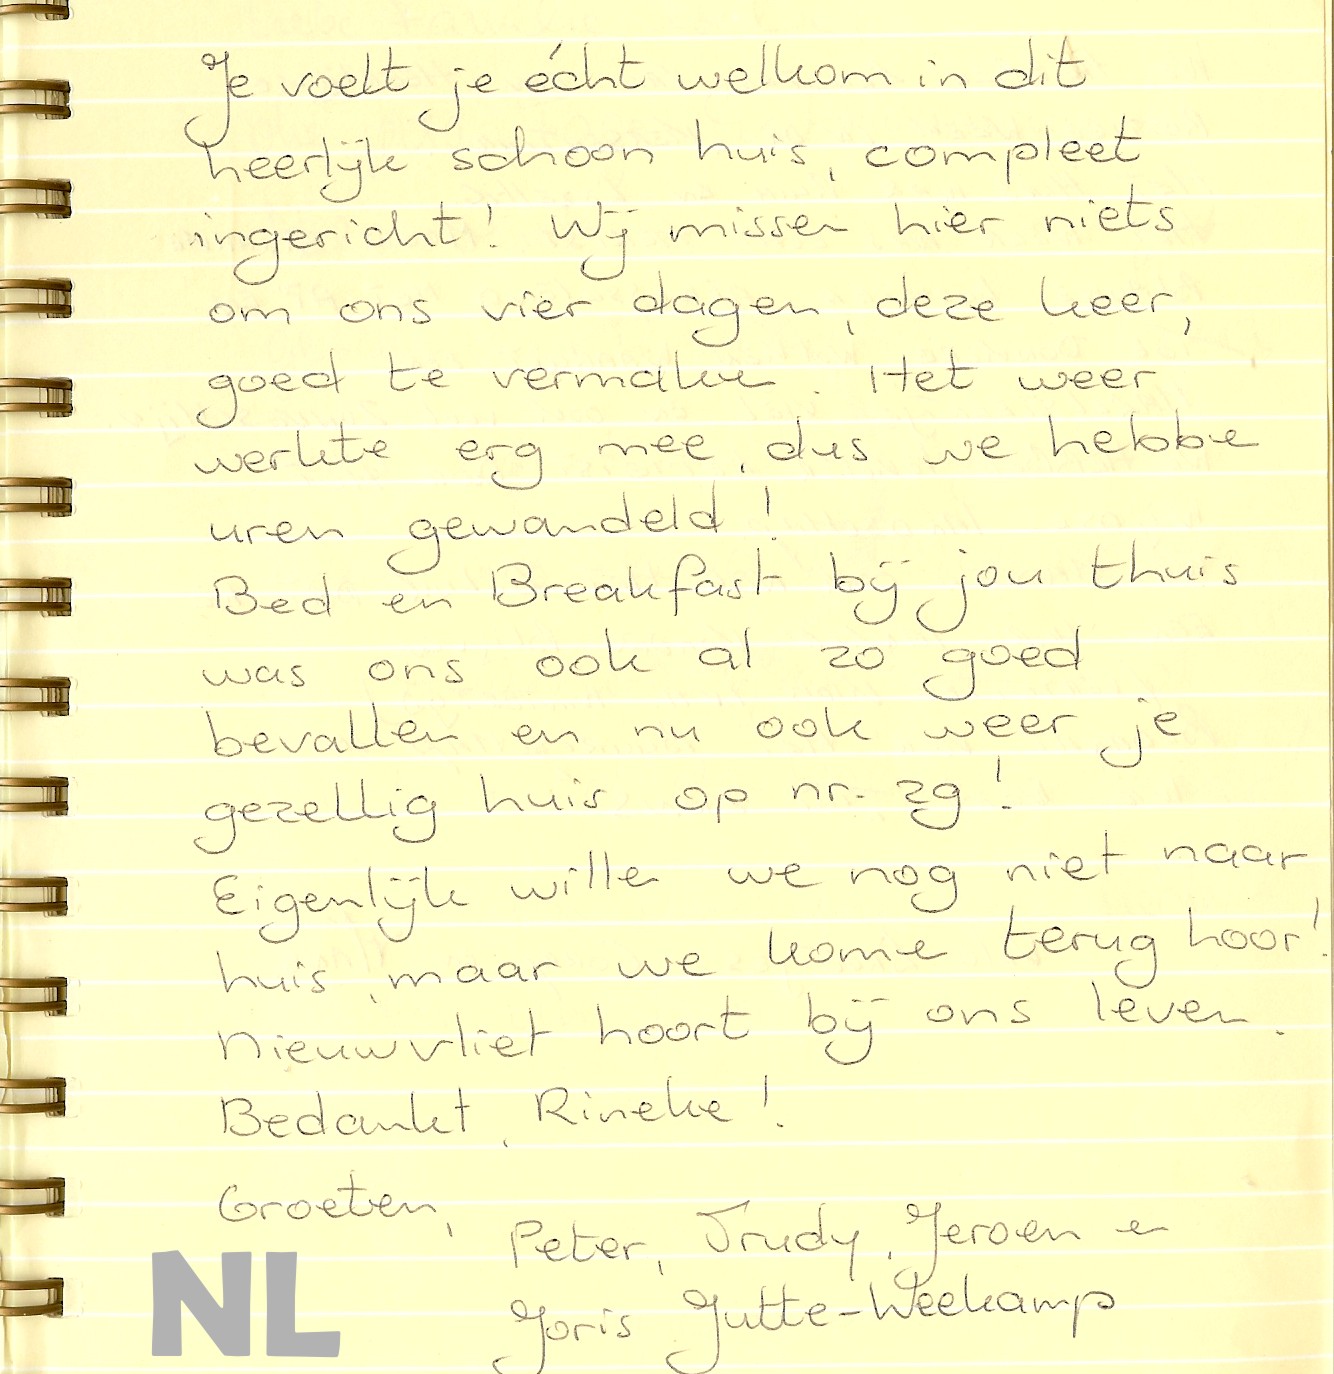 Je voelt je écht welkom in dit
heerlijk schoon huis, compleet
ingericht! Wij missen hier niets
om ons vier dagen, deze keer,
goed te vermaken. Het weer
werkte erg mee, dus we hebben
uren gewandeld!
Bed en Breakfast bij jou thuis
was ons ook al zo goed
bevallen en nu ook weer je
gezellig huis op nr. 29!
Eigenlijk willen we nog niet naar
huis, maar we komen terug hoor!
Nieuwvliet hoort bij ons leven.
Bedankt, Rineke!
Groeten,
Peter, Trudy, Jeroen en
Joris Jutte-Weekamp
NL